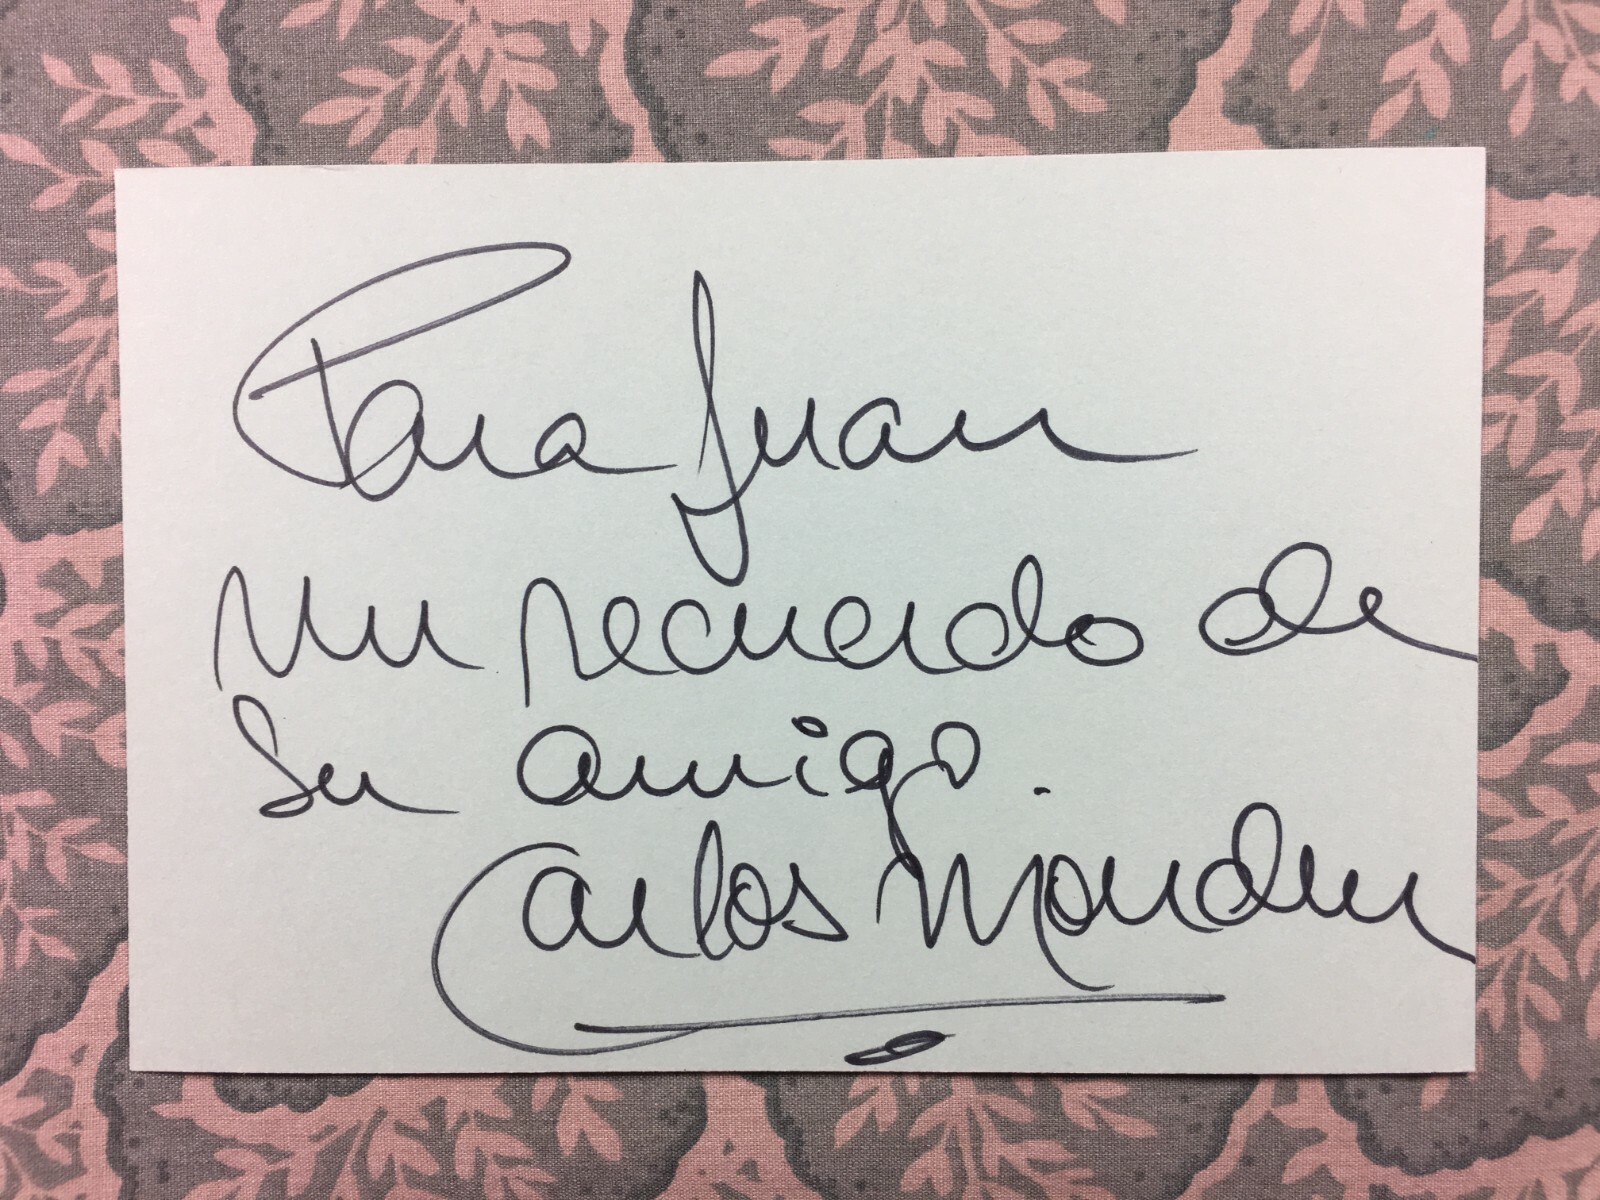 Para Juan
un recuerdo de
su amigo.
Carlos